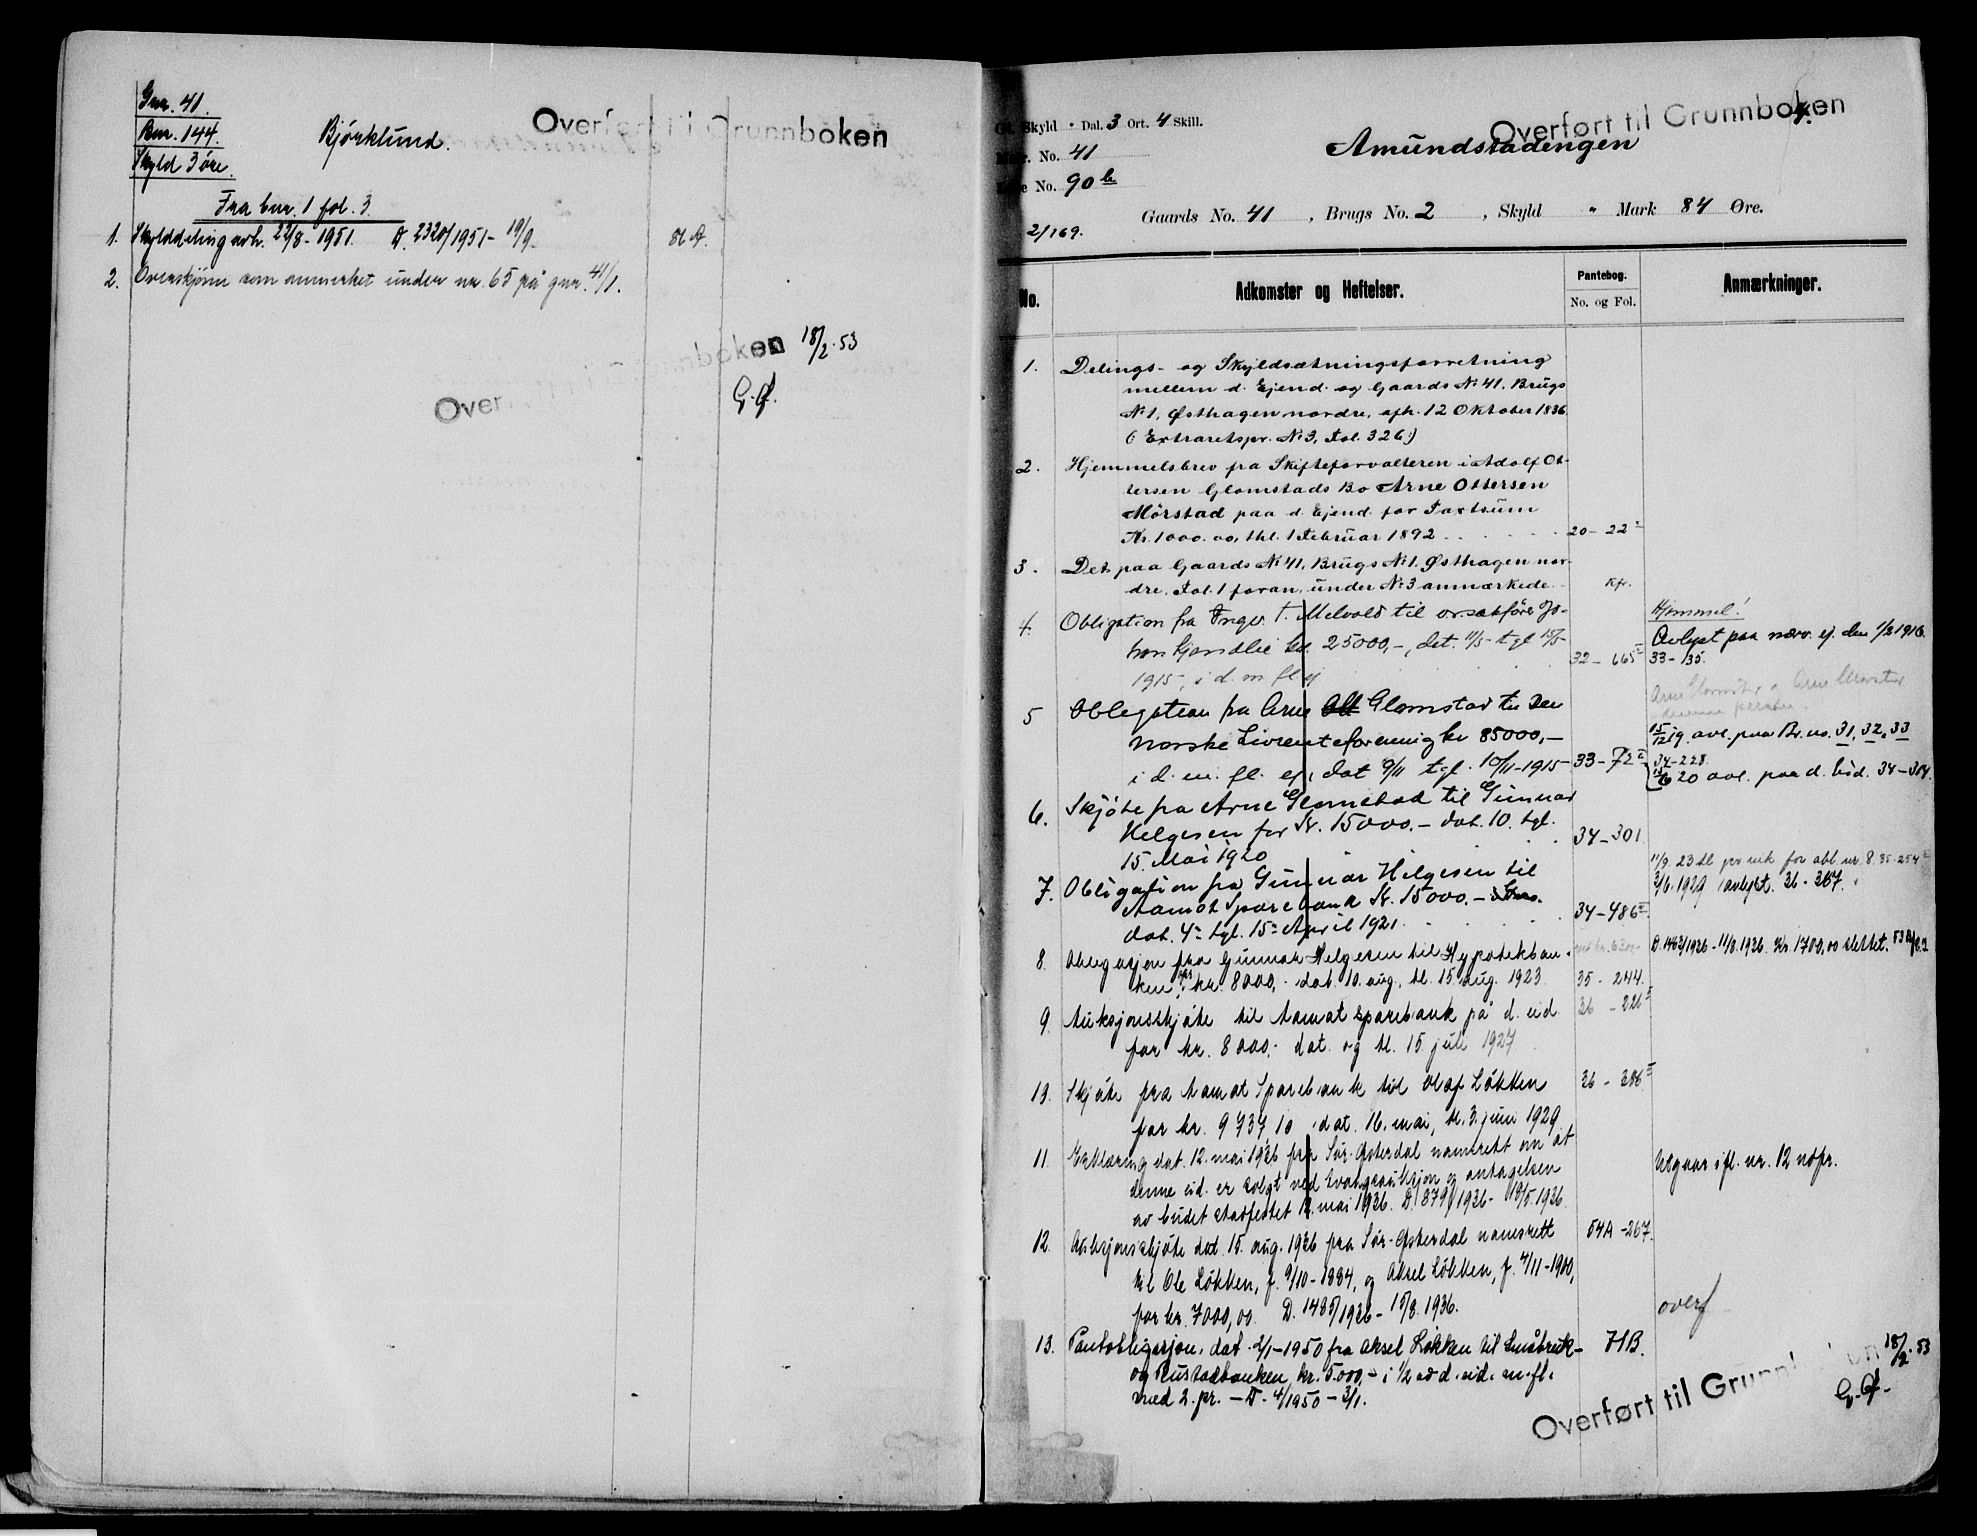 Gnr. 41.
Bnr. 144.
Skyld 3 øre.
Bjørklund.
Overført til Grunnboken
Fra bnr. 1 fol. 3.
1. Skylddeling avh. 22/8-1951. D. 2320/1951-19/9.
2. Overskjønn som anmerket under nr. 65 på gnr. 41/1.
18/2.53
G.
Skyld " Dal. 3 Ort. 4 Skill.
No. 41
No. 90 b
2/169.
Overført til Grunnboken
Amundstadengen
Gaards No. 41, Brugs No. 2, Skyld " Mark 84 Øre.
No.
Adkomster og Heftelser.
Pantebog.
No. og Fol.
Anmærkninger.
1. Delings- og Skyldsætningsforretning
mellem d. Ejend. og Gaards No 41, Brugs
No 1, Østhagen nordre, afh. 12 Oktober 1836
(Extraretspr. No 3, Fol. 326.)
2. Hjemmelsbrev fra Skifteforvalteren i Adolf Ot-
tersen Glomstads Bo Arne Ottersen
Mörstad paa d. Ejend. for Taxtsum
Kr. 1000.00, thl. 1 Februar 1892 20-22
3. Det paa Gaards No 41, Brugs No 1, Østhagen nor-
dre, Fol. 1 foran, under No 3 anmærkede. Kfr.
4. Obligation fra Inger T. Melvold til orsakfører Jo-
han kr. 25000,-, dat. 11/5 tgl 15/5
1915, i d. m fl ej 32-665
Hjemmel!
Avlyst paa nærv. ej. den 1/2 1916.
33-135.
5 Obligation fra Arne Glomstad til Den
norske Livrenteforening kr 85000,-
i d. m. fl. ej, dat 9/11 tgl. 10/11-1915 33-72
15/12 19. avl. paa Br. no. 31, 32, 33
34-228
20 avl. paa d. eid. 34-304.
6. Skjøte fra Arne Glomstad til Gunnar
Helgesen for Kr. 15000.- dat. 10. tgl.
15. Mai 1920 34-301
7. Obligation fra Gunnar Helgesen til
Aamot Sparebank Kr. 15000.-
dat. 4= tgl. 15= April 1921. 34-486
11/9. 23 for obl. nr. 8. 35-254
3/6. 1929 avlyst. 36-387.
8. Obligasjon fra Gunnar Helgesen til Hypotekban-
ken for kr. 8000,- dat. 10. aug. tl. 15 aug. 1923 35-244.
D. 1463/1936-11/8.1936. Kr. 1700,00 slettet.
9. Auksjonsskjøte til Aamot sparebank på d. eid.
for kr. 8000,- dat. og tl. 15. juli 1927 36-226
10. Skjøte fra Aamot Sparebank til Olaf Løkken
for kr. 9737 10 dat. 16. mai, tl. 3. juni 1929 36-386
11. Erklæring dat. 12. mai 1936 fra Sør-Østerdal namsrett om at
denne eid. er solgt ved tvangsauksjon og antagelsen
av budet stadfestet 12. mai 1936. D. 879/1936-18/5 1936.
Utgaar ifl. nr. 12 nedfr.
12. Auksjonsskjøte dat. 15. aug. 1936 fra Sør-Østerdal namsrett
til Ole Løkken, f. 9/10-1884, og Aksel Løkken, f. 4/11-1900,
for kr. 7000,00. D. 1485/1936-15/8 1936. 54A-267.
overf
13. Pantobligasjon, dat. 2/1-1950 fra Aksel Løkken til Småbruk-
og Bustadbanken, kr. 5.000,- i 1/2 av d. eid. m. fl.
med 2. pr. - D. 4/1950-3/1. 71B.
Overført til Grunnboken 18/2.53
G.